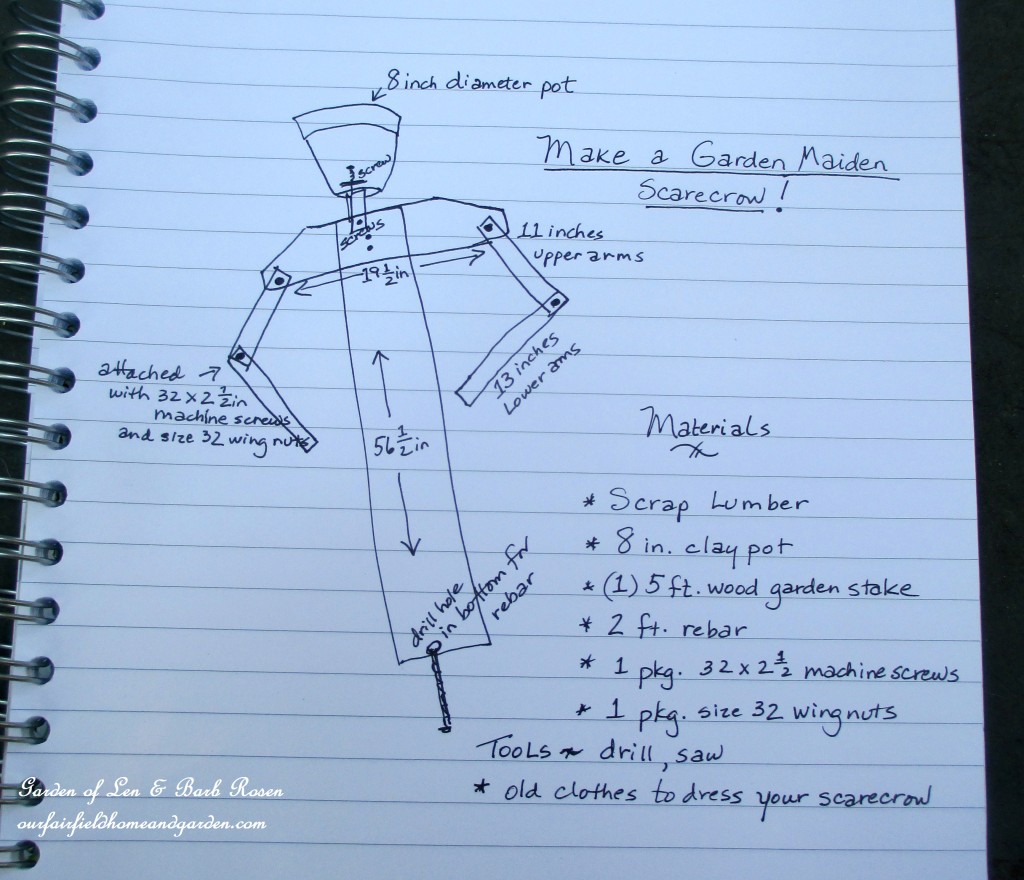 8 inch diameter pot
Make a Garden Maiden
Scarecrow!
screw
screws
11 inches
upper arms
19 1/2 in
13 inches
Lower arms
attached →
with 32 x 2 1/2 in
machine screws
and size 32 wing nuts
56 1/2 in
drill hole
in bottom for
rebar
Materials
* Scrap Lumber
* 8 in. clay pot
* (1) 5 ft. wood garden stake
* 2 ft. rebar
* 1 pkg. 32 x 2 1/2 machine screws
* 1 pkg. size 32 wing nuts
Tools ~ drill, saw
* old clothes to dress your scarecrow
Garden of Len & Barb Rosen
ourfairfieldhomeandgarden.com